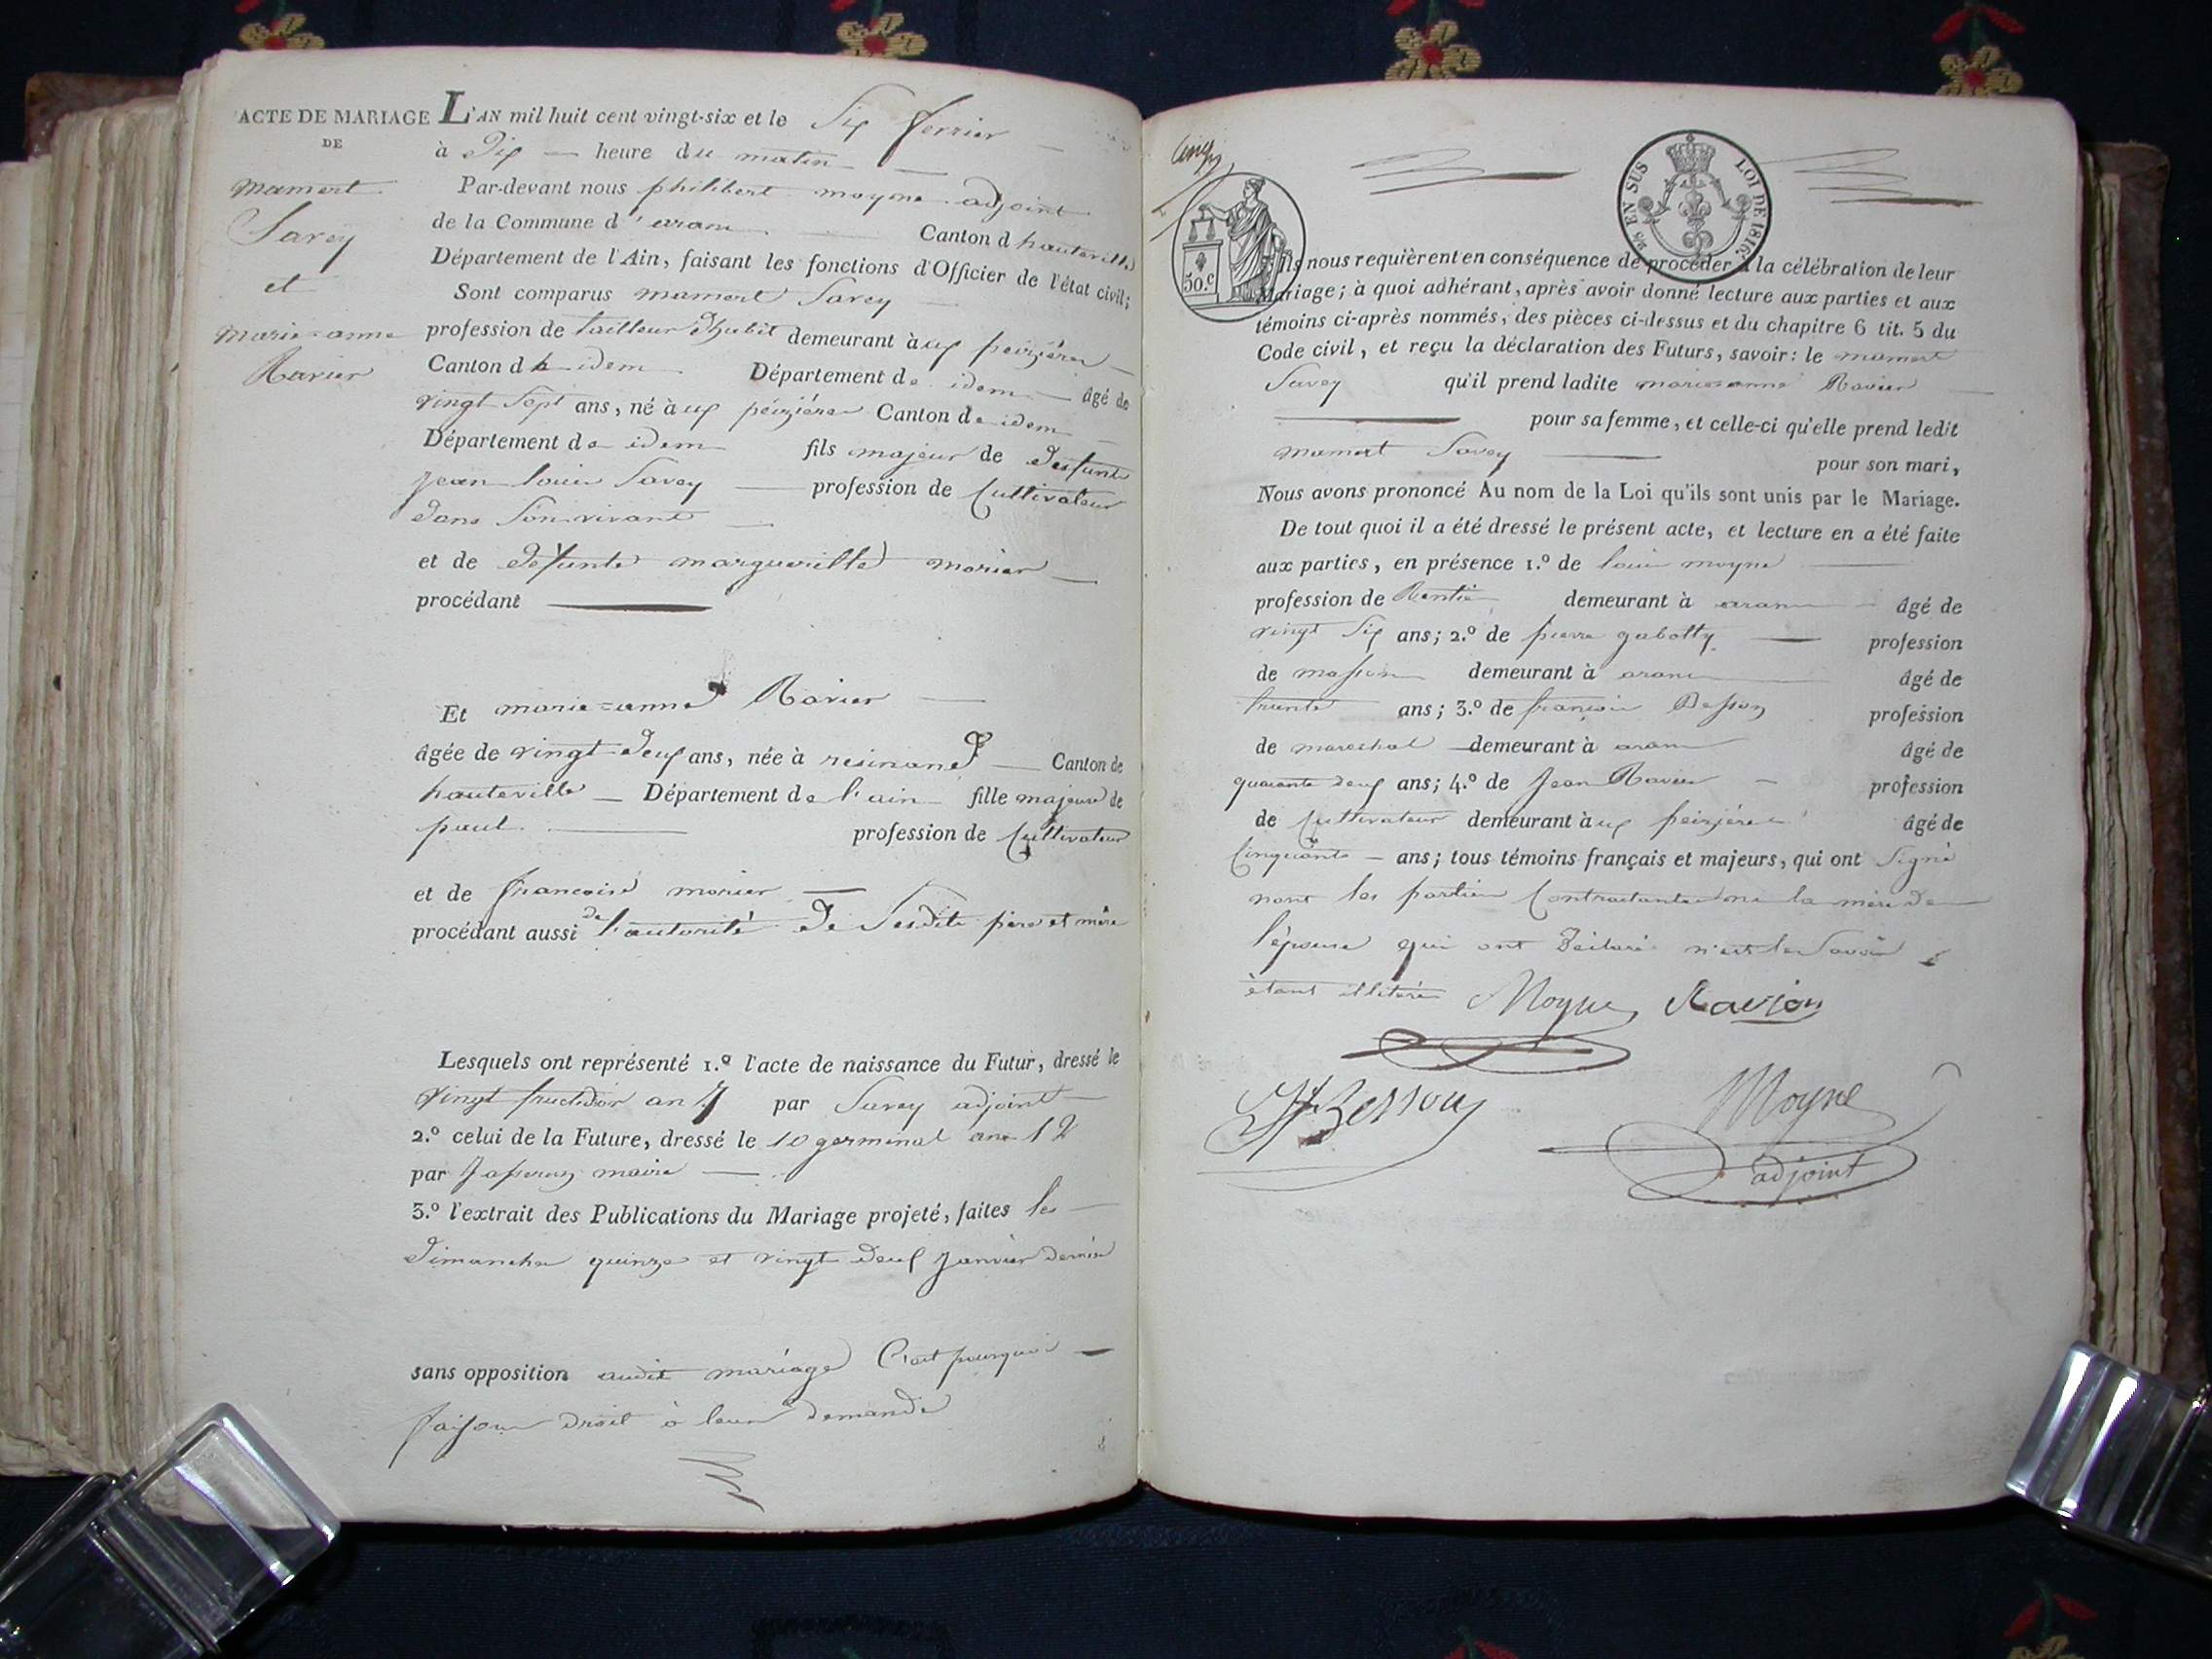 ACTE DE MARIAGE
DE
mamert
Savey
et
marie=anne
Ravier
L'AN mil huit cent vingt-six et le Six fevrier
à Dix heure du matin
Par-devant nous philibert moyne adjoint
de la Commune d'aranc Canton d hauteville
Département de l'Ain, faisant les fonctions d'Officier de l'état civil;
Sont comparus mamert Savey
profession de tailleur d'habit demeurant à ux peizieres
Canton d idem Département de idem âgé de
vingt Sept ans, né à ux peizieres Canton de idem
Département de idem fils majeur de defunt
jean louis Savey profession de Cultivateur
dans Son vivant
et de défunte margueritte morier
procédant
Et marie=anne Ravier
âgée de vingt deux ans, née à resinand Canton de
hauteville Département de l'ain fille majeure de
paul profession de Cultivateur
et de francoise morier
procédant aussi de l'autorité de Sesdits père et mère
Lesquels ont représenté 1.º l'acte de naissance du Futur, dressé le
vingt fructidor an 7 par Savey adjoint
2.º celui de la Future, dressé le 10 germinal an 12
par maire
3.º l'extrait des Publications du Mariage projeté, faites les
dimanches quinze et vingt deux janvier dernier
sans opposition audit mariage C'est pourquoi
faisant droit à leur demande
50.c
25 EN SUS LOI DE 1816.
Ils nous requièrent en conséquence de procéder à la célébration de leur
Mariage; à quoi adhérant, après avoir donné lecture aux parties et aux
témoins ci-après nommés, des pièces ci-dessus et du chapitre 6 tit. 5 du
Code civil, et reçu la déclaration des Futurs, savoir: le mamert
Savey qu'il prend ladite marie=anne Ravier
pour sa femme, et celle-ci qu'elle prend ledit
mamert Savey pour son mari,
Nous avons prononcé Au nom de la Loi qu'ils sont unis par le Mariage.
De tout quoi il a été dressé le présent acte, et lecture en a été faite
aux parties, en présence 1.º de louis moyne
profession de Rentier demeurant à aranc âgé de
vingt Six ans; 2.º de pierre gabotty profession
de masson demeurant à aranc âgé de
trente ans; 3.º de françois Besson profession
de marechal demeurant à aranc âgé de
quarante deux ans; 4.º de Jean Ravier profession
de Cultivateur demeurant à ux peizieres âgé de
Cinquante ans; tous témoins français et majeurs, qui ont Signé
non les parties Contractantes ni la mère de
l'épouse qui ont déclaré Savoir
étant illitéré Moyne Ravier
Besson Moyne
adjoint